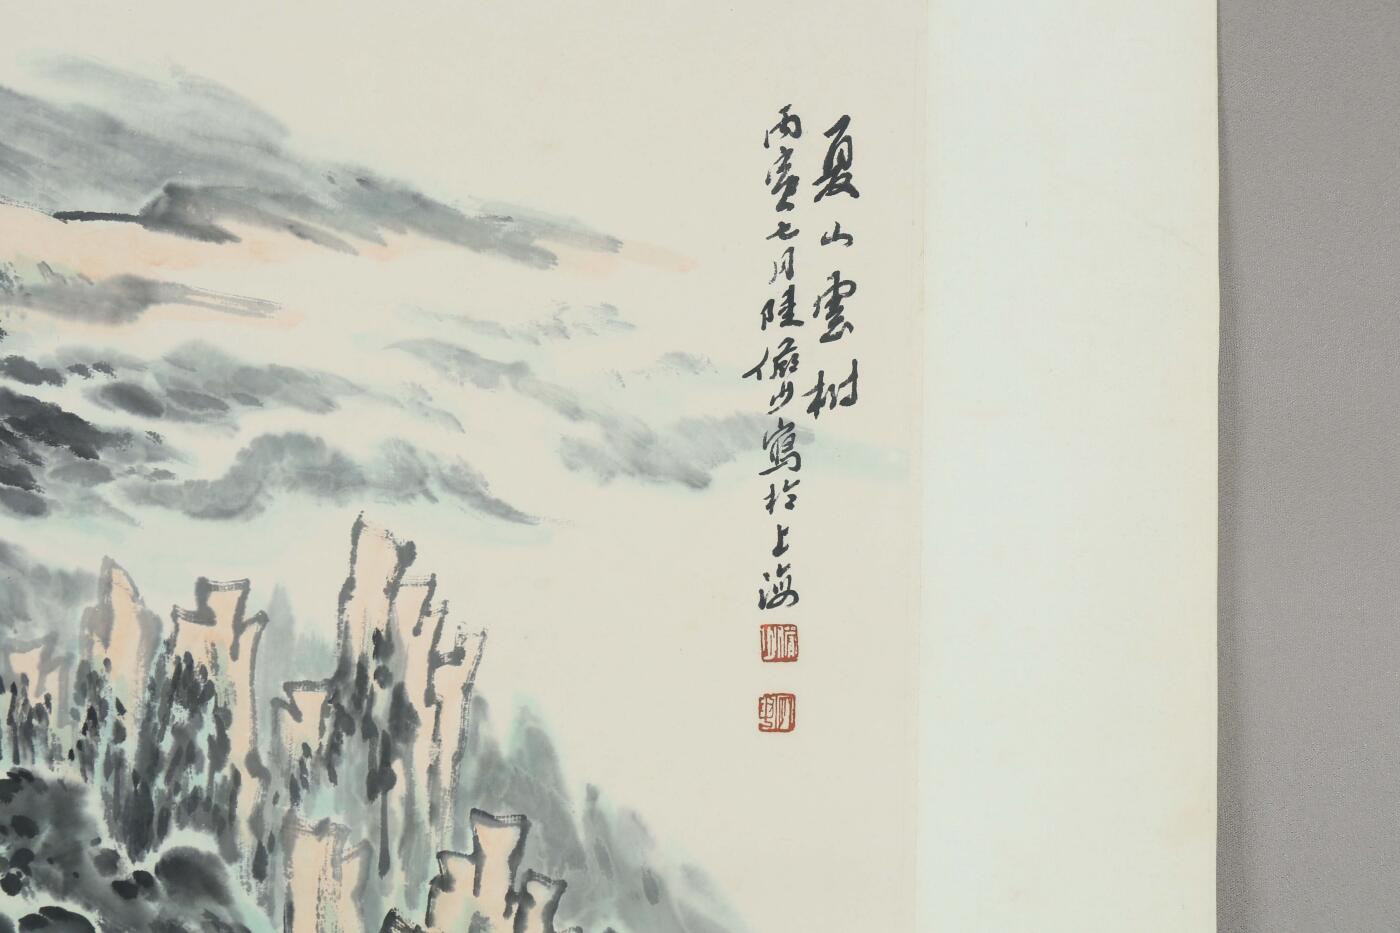 夏山雲樹
丙寅七月陸儼少寫於上海